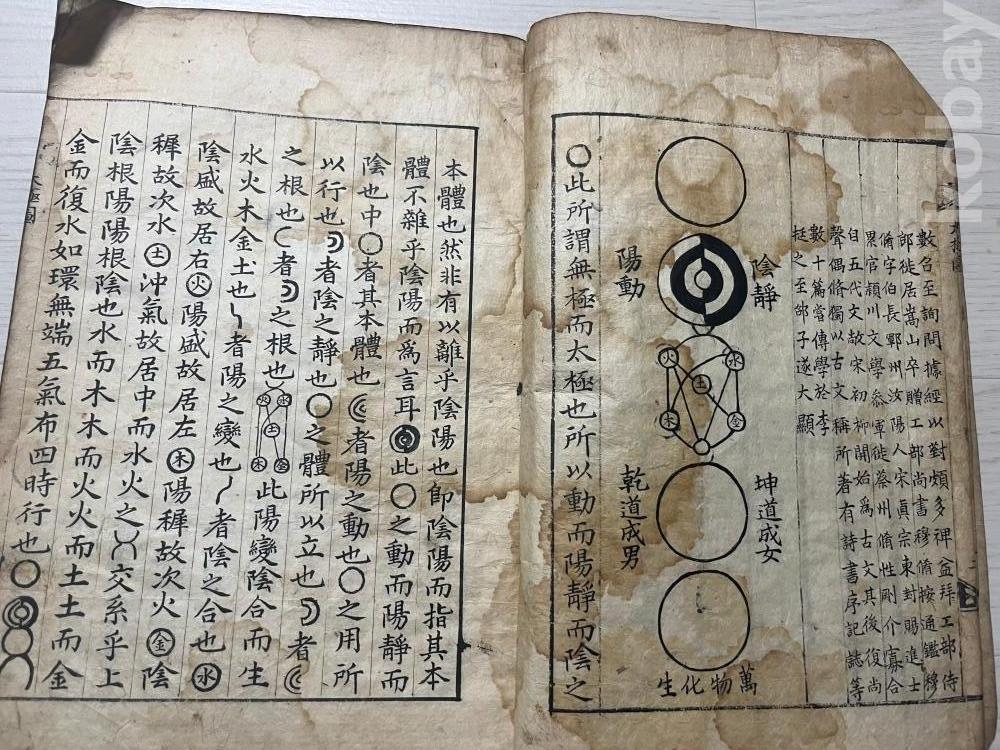 數名至詢問據經以對頗多裨益拜工部侍
郎徙居嵩山卒贈工部尚書穆脩按通鑑穆
脩字伯長鄆州汶陽人宋眞宗東封賜進士
累官潁川文學參軍徙蔡州脩性剛介寡合
自五代文故宋初柳開始爲古文其後復尚
聲偶脩獨以古文稱所著有詩書序記誌等
數十篇當傳學於李
挺之至邵子遂大顯
陰靜
陽動
水
火
土
金
坤道成女
乾道成男
萬物化生
○此所謂無極而太極也所以動而陽靜而陰之
本體也然非有以離乎陰陽也卽陰陽而指其本
體不雜乎陰陽而爲言耳此○之動而陽靜而
陰也中○者其本體也者陽之動也○之用所
以行也者陰之靜也○之體所以立也者
之根也者之根也
水火土木金
此陽變陰合而生
水火木金土也者陽之變也者陰之合也水
陰盛故居右火陽盛故居左木陽穉故次火金陰
穉故次水土沖氣故居中而水火之交系乎上
陰根陽陽根陰也水而木木而火火而土土而金
金而復水如環無端五氣布四時行也○
太極圖
kobay